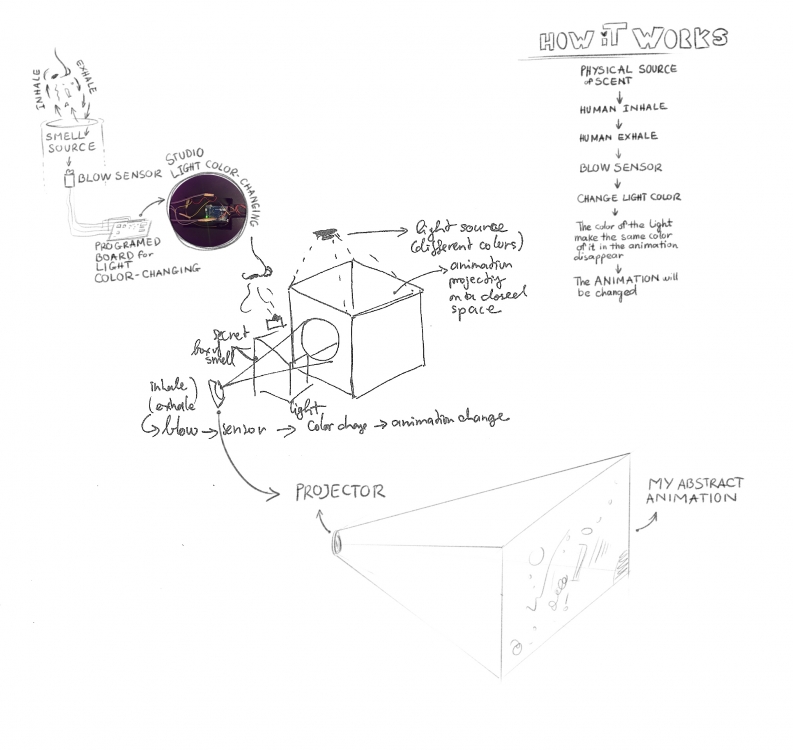 HOW iT WORKS
PHYSICAL SOURCE
of SCENT
HUMAN INHALE
HUMAN EXHALE
BLOW SENSOR
CHANGE LIGHT COLOR
The color of the Light
make the same color
of it in the animation
disappear
The ANIMATION will
be changed
INHALE
EXHALE
SMELL
SOURCE
BLOW SENSOR
PROGRAMED
BOARD for
LIGHT
COLOR-CHANGING
STUDIO
LIGHT COLOR-CHANGING
light source
(different colors)
animation
projecting
on a closed
space
secret
box of
smell
inhale
exhale
light
blow → sensor → Color change → animation change
PROJECTOR
MY ABSTRACT
ANIMATION